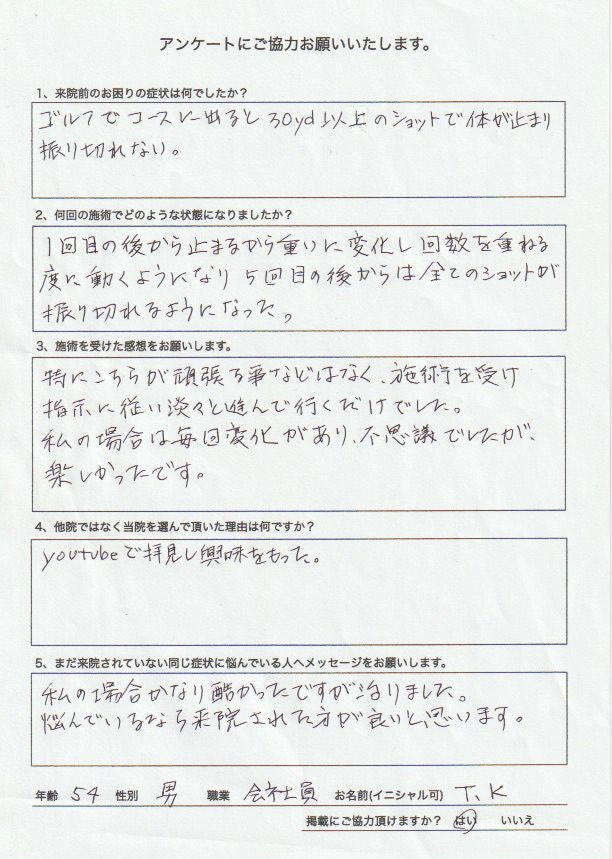 アンケートにご協力お願いいたします。
1、来院前のお困りの症状は何でしたか?
ゴルフでコースに出ると30yd以上のショットで体が止まり
振り切れない。
2、何回の施術でどのような状態になりましたか?
1回目の後から止まるから重いに変化し回数を重ねる
度に動くようになり5回目の後からは全てのショットが
振り切れるようになった。
3、施術を受けた感想をお願いします。
特にこちらが頑張る事などはなく、施術を受け
指示に従い淡々と進んで行くだけでした。
私の場合は毎回変化があり、不思議でしたが、
楽しかったです。
4、他院ではなく当院を選んで頂いた理由は何ですか?
youtubeで拝見し興味をもった。
5、まだ来院されていない同じ症状に悩んでいる人へメッセージをお願いします。
私の場合かなり酷かったですが治りました。
悩んでいるなら来院された方が良いと思います。
年齢 54 性別 男 職業 会社員 お名前(イニシャル可) T.K
掲載にご協力頂けますか? はい いいえ